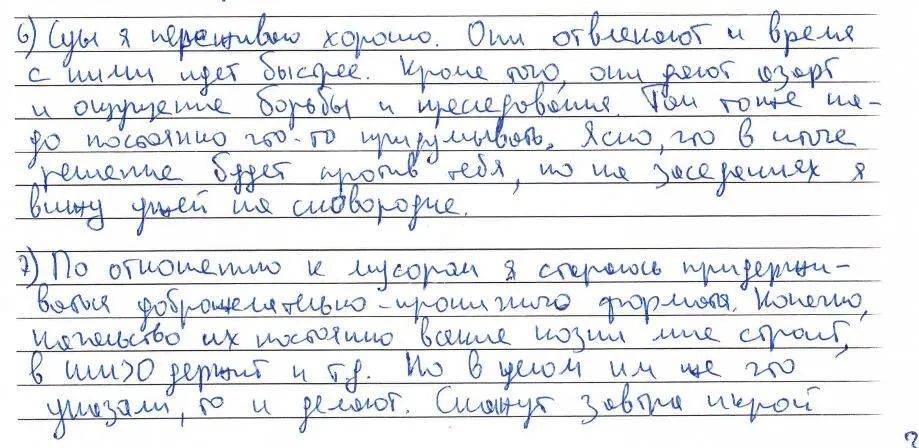 6) Суды я переживаю хорошо. Они отвлекают и время
с ними идет быстрее. Кроме того, они дают азарт
и ощущение борьбы и преследования. Там тоже на-
до постоянно что-то придумывать. Ясно, что в итоге
решение будет против тебя, но на заседаниях я
вижу ужей на сковородке.
7) По отношению к мусорам я стараюсь придержи-
ваться доброжелательно-ироничного формата. Конечно,
начальство их постоянно всякие козни мне строит,
в ШИЗО держит и т.д. Но в целом им же что
указали, то и делают. Скажут завтра икрой